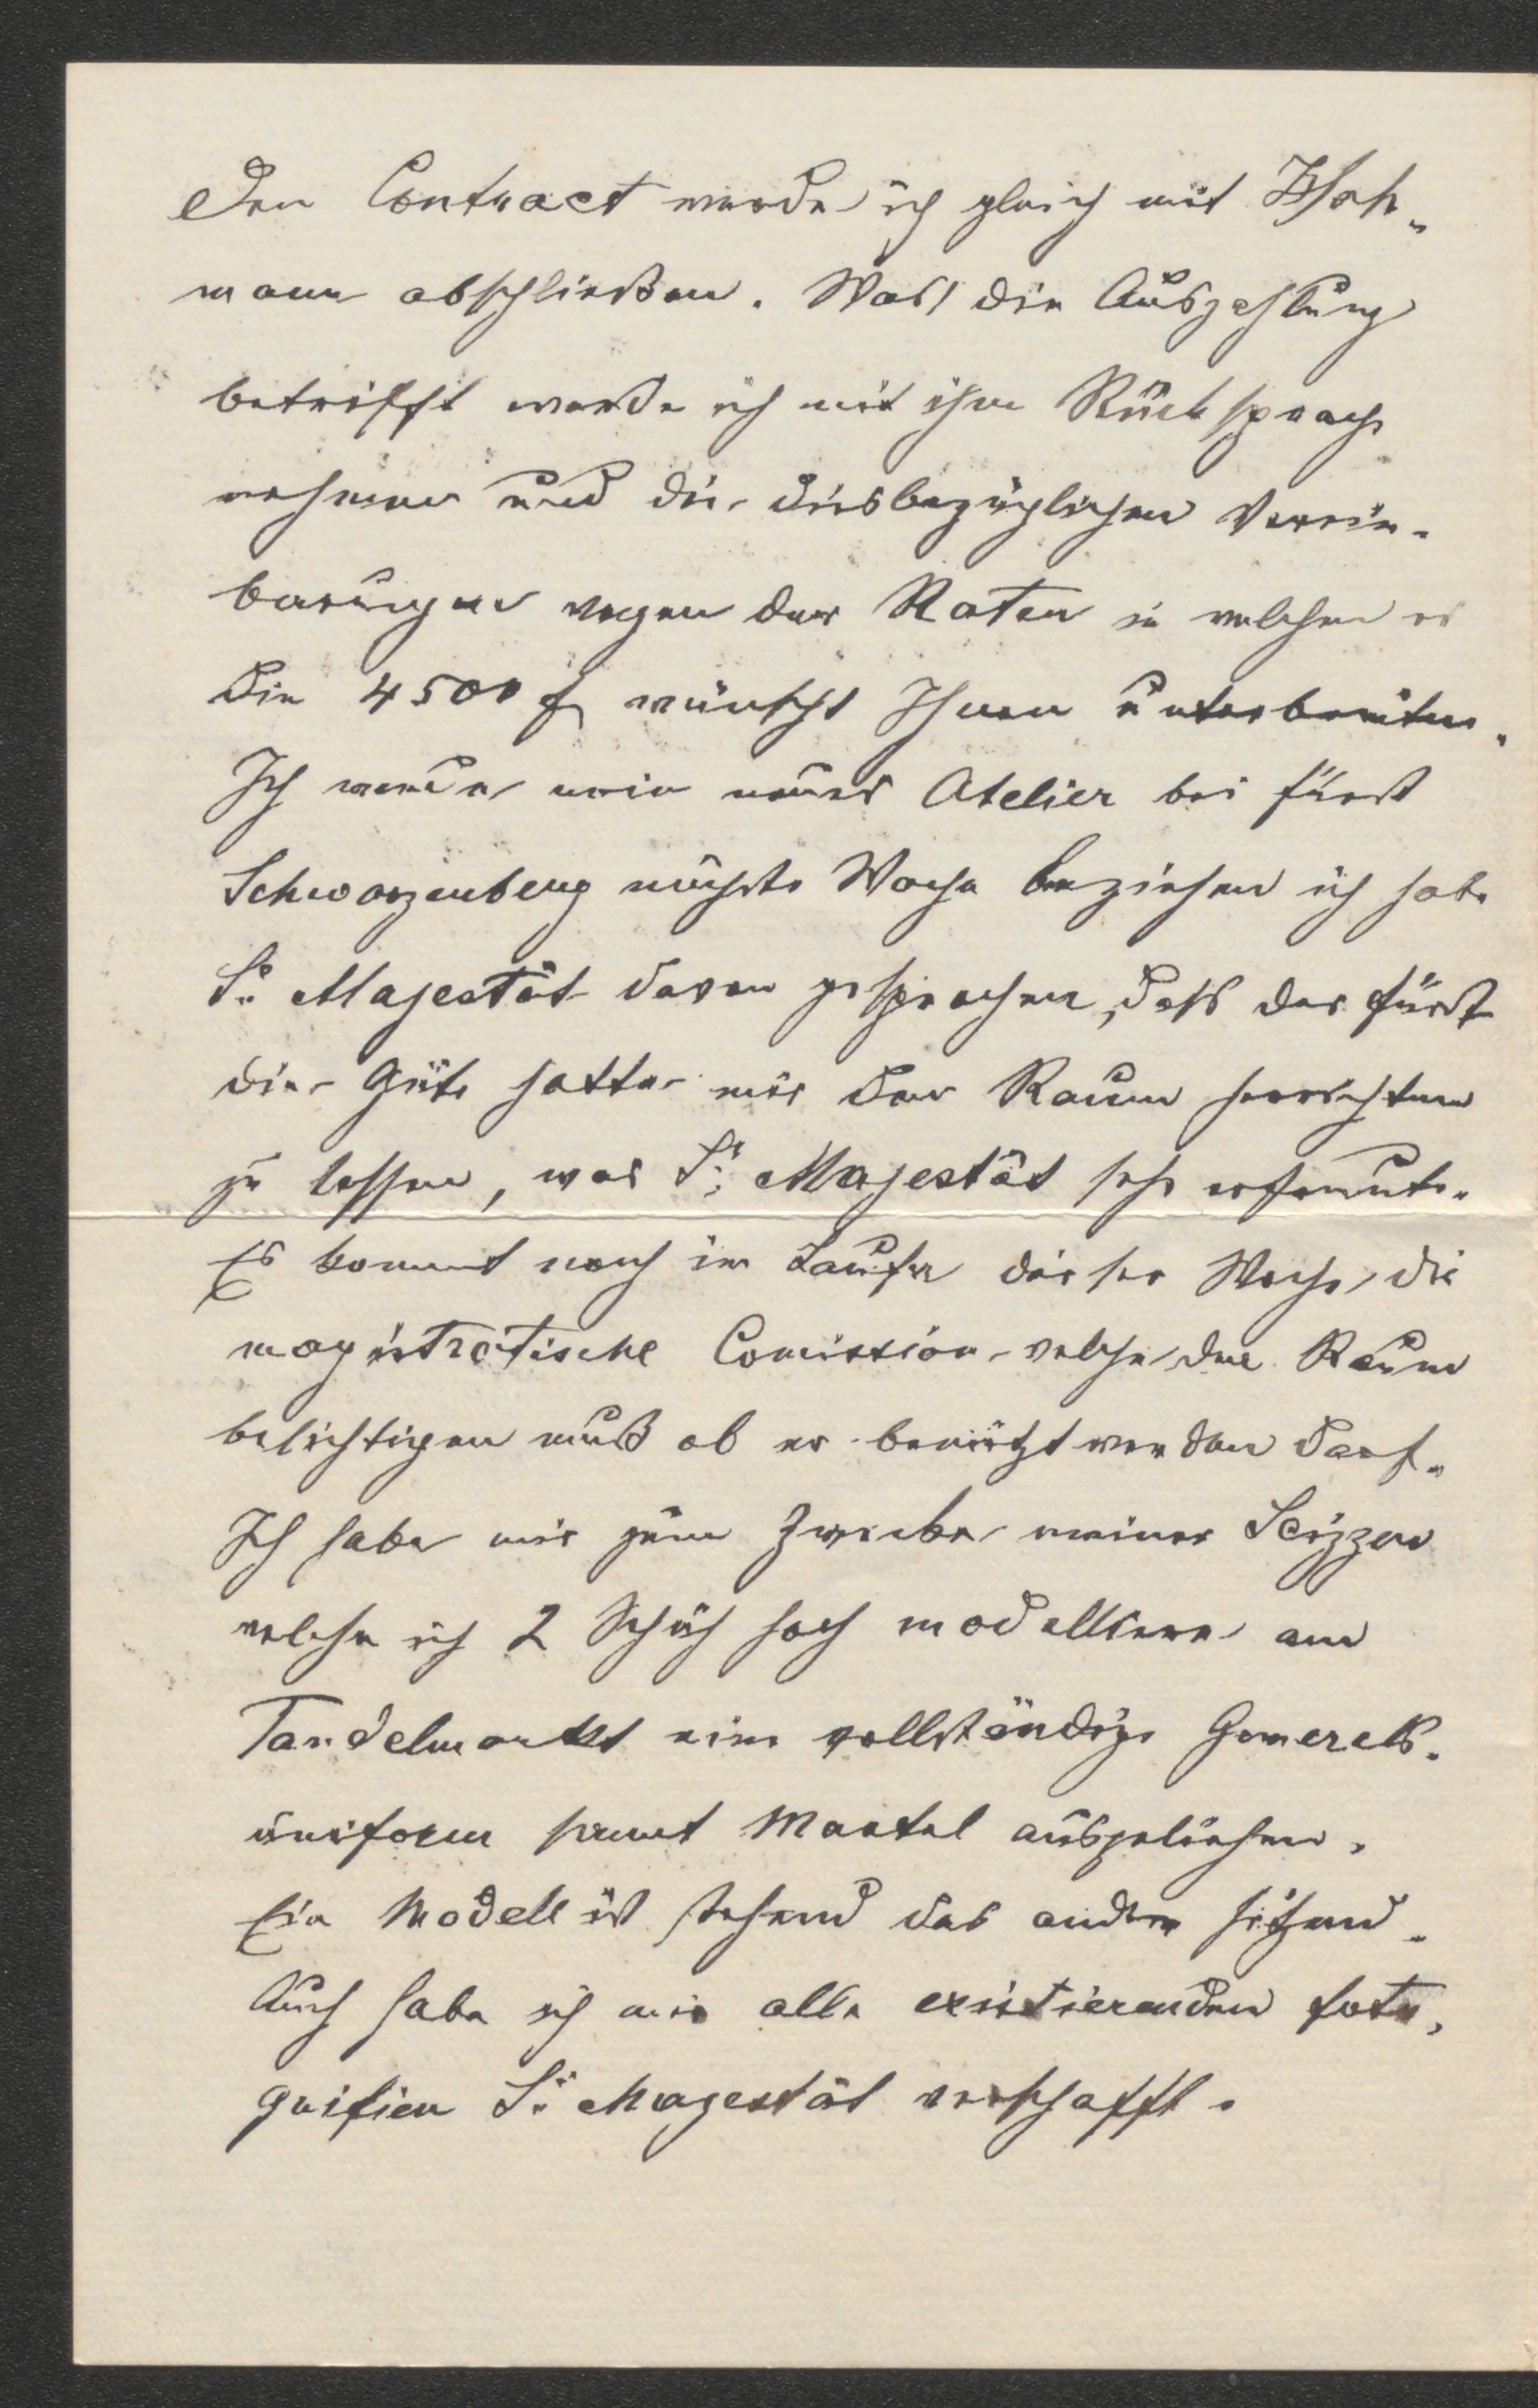 Den Contract werde ich gleich mit
mann abschließen. Was die Auszahlung
betrifft werde ich mit ihm Rücksprache
nehmen und die diesbezüglichen Verein-
barungen wegen der Raten in welchen er
die 4500 f wünscht Ihnen unterbreiten.
Ich werde mein neues Atelier bei Fürst
Schwarzenberg nächste Woche beziehen ich habe
Sr. Majestät davon gesprochen, daß der Fürst
die Güte hatte mir den Raum herrichten
zu lassen, was Sr. Majestät sehr erfreute.
Es kommt noch im Laufe dieser Woche die
magistratische Comission welche den Raum
besichtigen muß ob er benützt werden darf.
Ich habe mir zum Zwecke meiner Scizzen
welche ich 2 Schuh hoch modelliere am
Tandelmarkt eine vollständige Generals-
uniform sammt Mantel ausgeliehen.
Ein Modell ist stehend das andere sitzend.
Auch habe ich mir alle existierenden Foto-
grafien Sr. Majestät verschafft.